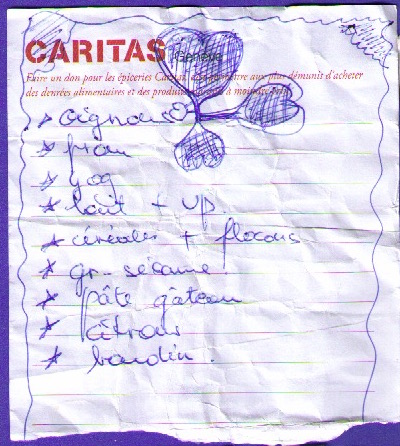 CARITAS Genève
Faire un don pour les épiceries Caritas permettre aux plus démunis d'acheter
des denrées alimentaires et des produits à moindre
oignons
yog
lait + up
céréales + flocons
gr-sésame
pâte gâteau
citrons
boudin.